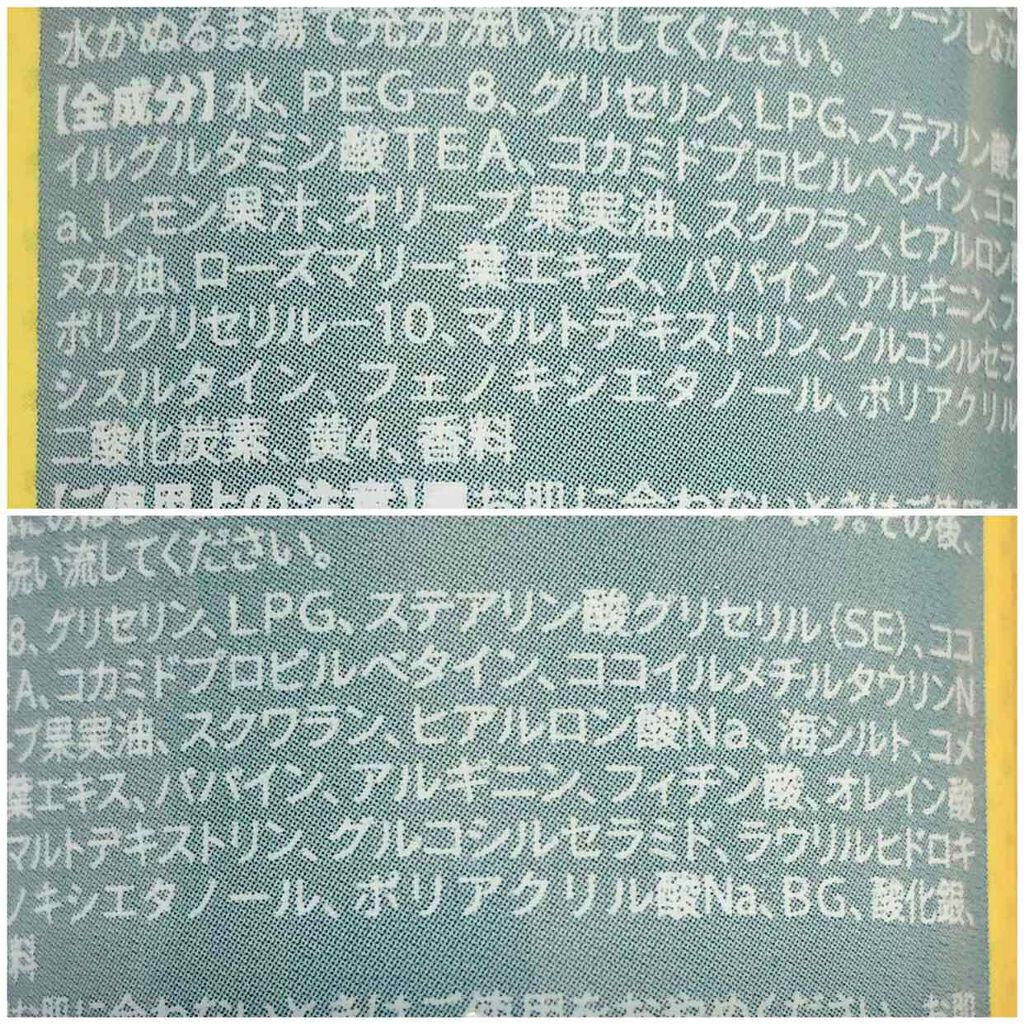 水かぬるま湯で充分洗い流してください。
【全成分】水、PEG－8、グリセリン、LPG、ステアリン酸
イルグルタミン酸TEA、コカミドプロピルベタイン、ココ
a、レモン果汁、オリーブ果実油、スクワラン、ヒアルロン
ヌカ油、ローズマリー葉エキス、パパイン、アルギニン、フ
ポリグリセリル－10、マルトデキストリン、グルコシルセラ
シスルタイン、フェノキシエタノール、ポリアクリル
二酸化炭素、黄4、香料
【ご使用上の注意】■お肌に合わないときはご使用
その後、
洗い流してください。
8、グリセリン、LPG、ステアリン酸グリセリル(SE)、ココ
A、コカミドプロピルベタイン、ココイルメチルタウリンN
ブ果実油、スクワラン、ヒアルロン酸Na、海シルト、コメ
葉エキス、パパイン、アルギニン、フィチン酸、オレイン酸
マルトデキストリン、グルコシルセラミド、ラウリルヒドロキ
ノキシエタノール、ポリアクリル酸Na、BG、酸化銀、
料
お肌に合わないときはご使用をおやめください。お肌